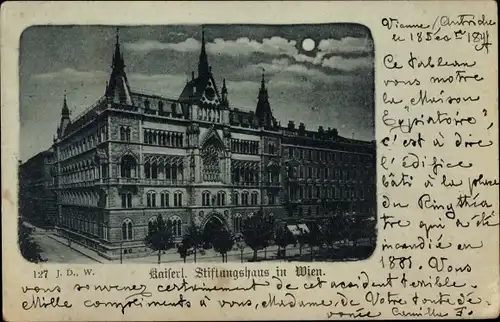 Vienne / Autriche
le 18
Ce Tableau
vous montre
la „Maison
Expiatoire",
c'est à dire
l'édifice
bâti à la place
du Ringthéâ-
tre qui a été
incendié en
1881. Vous
127 J. D., W. Kaiserl. Stiftungshaus in Wien.
vous souvenez certainement de cet accident terrible.
Mille compliments à vous, Madame, de Votre toute dé-
vouée Camilla F.